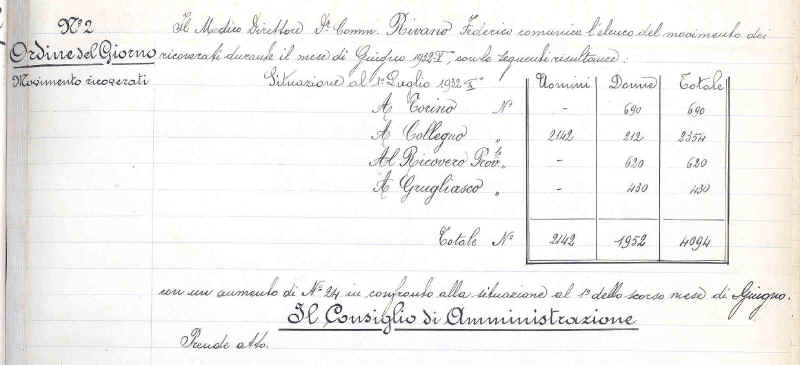 N° 2
Ordine del Giorno
Movimento ricoverati
Il Medico Direttore Dr Comm. Rivano Federico comunica l'elenco del movimento dei
ricoverati durante il mese di Giugno 1932-X, con le seguenti resultanze:
Situazione al 1° Luglio 1932-X° Uomini Donne Totale
A Torino N° - 690 690
A Collegno " 2142 212 2354
Al Ricovero Prov.le " - 620 620
A Grugliasco " - 430 430
Totale N° 2142 1952 4094
con un aumento di N° 24 in confronto alla situazione al 1° dello scorso mese di Giugno.
Il Consiglio di Amministrazione
Prende atto.